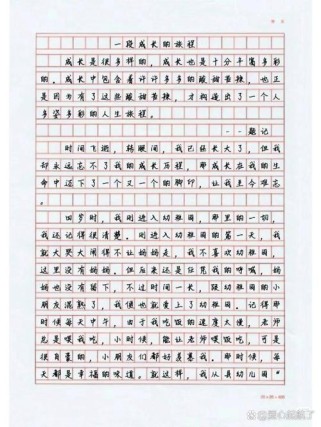 一段成长的旅程
成长是很多样的，成长也是十分丰富多彩
的。成长中包含着许许多多的酸甜苦辣，也正
是因为有了这些酸甜苦辣，才构造出了一个人
多姿多彩的人生旅程。
--题记
时间飞逝，转眼间，我已经长大了，但我
却永远忘不了我的成长历程，那成长在我的生
命中迈下了一个又一个的脚印，让我至今难忘
。
回梦时，我刚进入幼稚园，那里的一切，
我还记得很清楚。刚进入幼稚园的第一天，我
就大哭大闹得不让妈妈走，我不喜欢幼稚园，
这里没有妈妈。但后来还是任凭我的呼喊，妈
妈也没有留下，不过时间一长，跟幼稚园的小
朋友混熟了，我便也就爱上了幼稚园。记得那
时候每天中午，由于我吃饭的速度太慢，老师
总是喂我吃，小时候，能让老师喂饭吃，可是
很自豪的，小朋友们都好羡慕我。那时候，每
天都是幸福的味道，就这样，我从具幼儿园